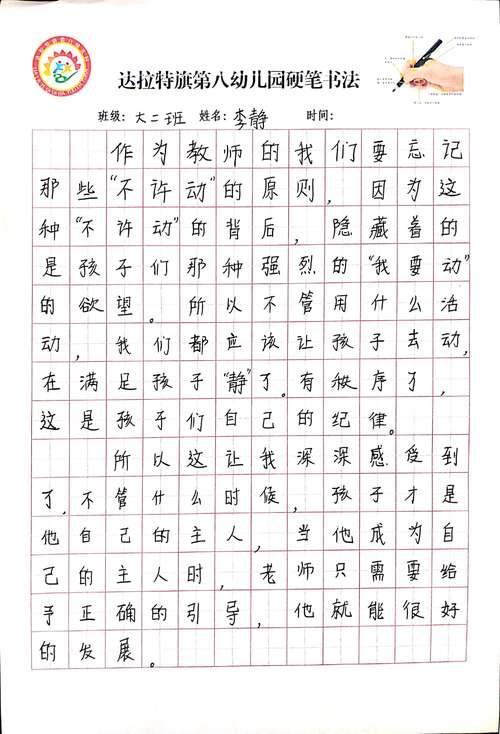 达拉特旗第八幼儿园硬笔书法
班级：大二班 姓名：李静 时间：
作为教师的我们要忘记
那些“不许动”的原则，因为这
种“不许动”的背后，隐藏着的
是孩子们那种强烈的“我要动”
的欲望。所以不管用什么活
动，我们都应该让孩子去动，
在满足孩子“静”了。有秩序了，
这是孩子们自己的纪律。
所以这让我深深感受到
了，不管什么时候，孩子才是
他自己的主人，当他成为自
己的主人时，老师只需要给
予正确的引导，他就能很好
的发展。